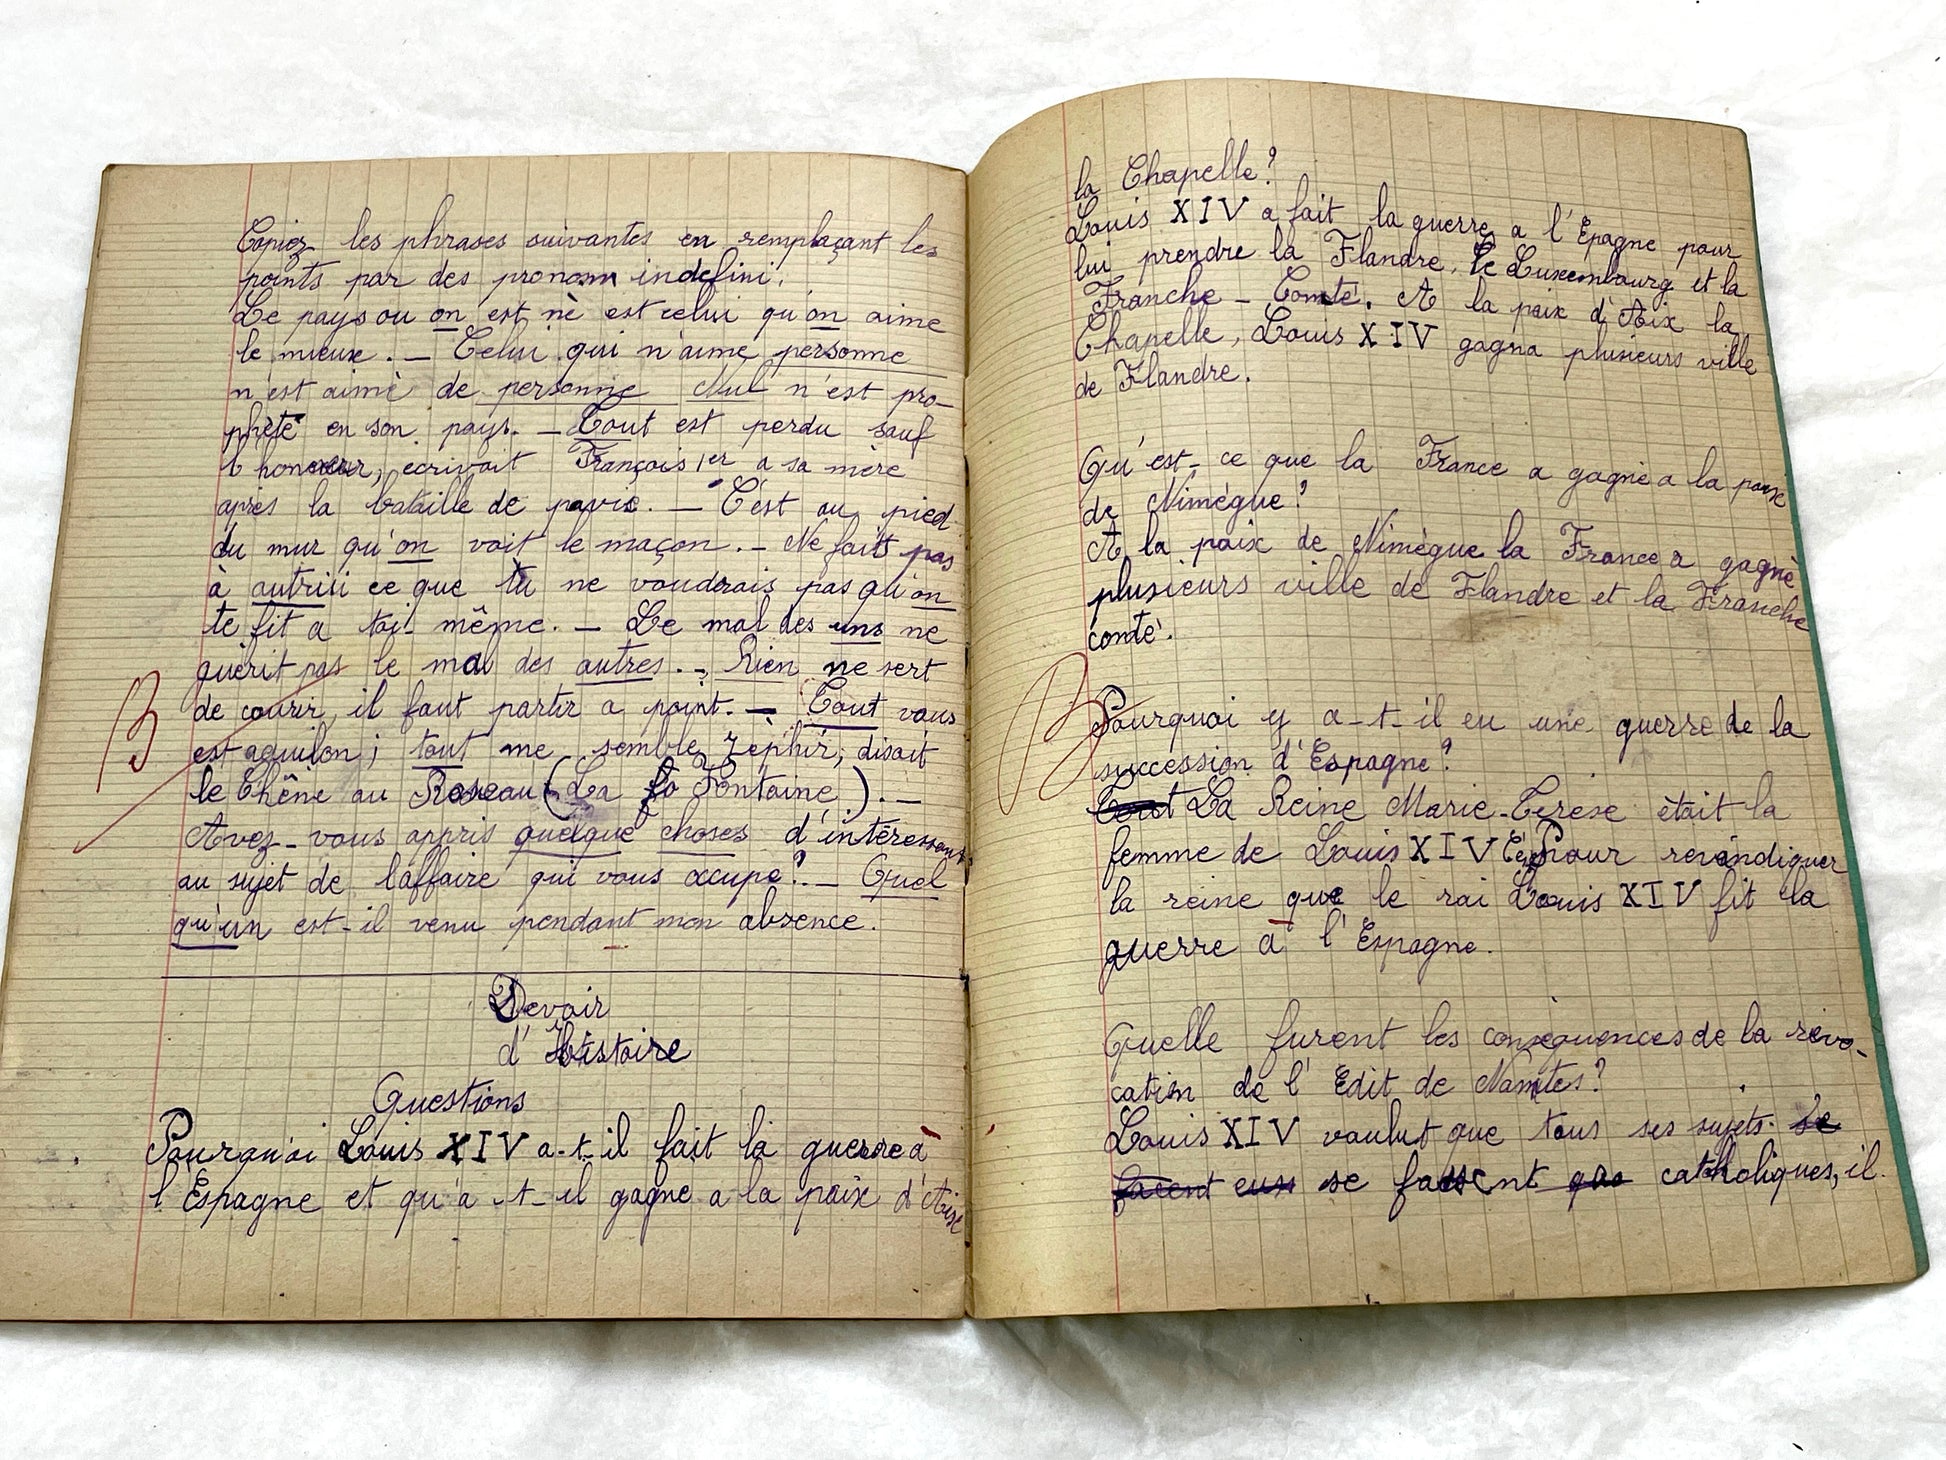 Copiez les phrases suivantes en remplaçant les
points par des pronom indefini.
Le pays ou on est nè est celui qu'on aime
le mieux. _ Celui qui n'aime personne
n'est aimè de personne Nul n'est pro_
phète en son pays. _ Tout est perdu sauf
l'honneur, ecrivait François 1er a sa mère
après la bataille de pavie. _ C'est au pied
du mur qu'on voit le maçon. _ Ne fait pas
à autrui ce que tu ne voudrais pas qu'on
te fit a toi_ même. _ Le mal des uns ne
guèrit pas le mal des autres. _ Rien ne sert
de courir, il faut partir a point. _ Tout vous
est aquilon; tout me semble zèphir, disait
le Chêne au Roseau (La Fontaine). _
Avez_vous appris quelque choses d'intèressant
au sujet de l'affaire qui vous occupe?. _ Quel
qu'un est_il venu pendant mon absence.
Devoir
d'Histoire
Questions
Pourquoi Louis XIV a_t_il fait la guerre à
l'Espagne et qu'a _t_il gagne a la paix d'Aix
B
la Chapelle?
Louis XIV a fait la guerre a l'Epagne pour
lui prendre la Flandre, le Luxembourg et la
Franche _ Comte. A la paix d'Aix la
Chapelle, Louis XIV gagna plusieurs ville
de Flandre.
Qu'est_ ce que la France a gagnè a la paix
de Nimègue?
A la paix de Nimègue la France a gagnè
plusieurs ville de Flandre et la Franche
comtè.
Pourquoi y a_t_il eu une guerre de la
succession d'Espagne?
Tout La Reine Marie_Terese ètait la
femme de Louis XIV Pour revindiquer
la reine que le roi Louis XIV fit la
guerre à l'Espagne.
Quelle furent les consèquences de la rèvo_
cation de l'Edit de Nantes?
Louis XIV voulut que tous ses sujets se
facent eux se fassent catholiques, il
B